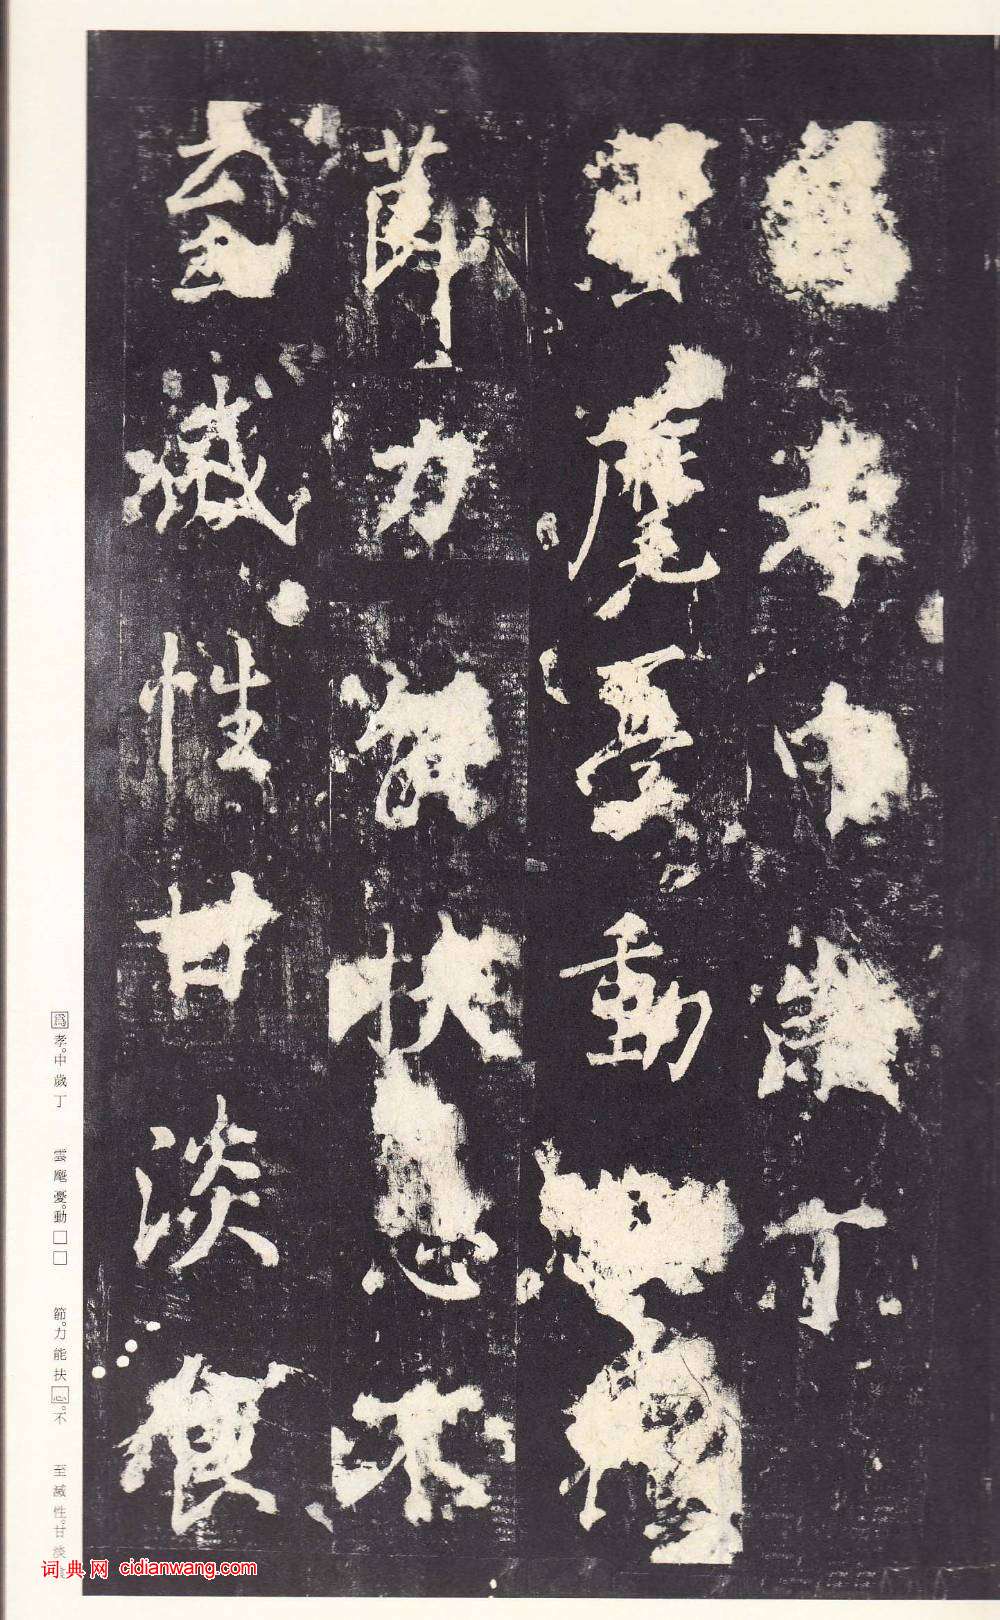 孝中歲丁
麾憂動
節力能扶不
至滅性甘淡
爲孝。中歲丁
雲麾憂。動□□
節。力能扶心。不
至滅性。甘淡
词典网 cidianwang.com